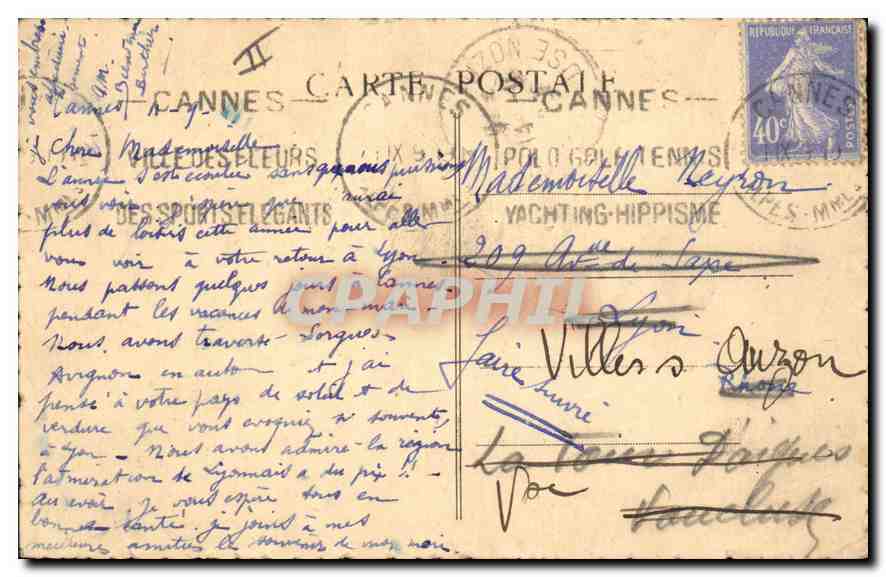 II
CARTE POSTALE
RÉPUBLIQUE FRANÇAISE
40c
POSTES
CANNES
CANNES
CANNES
CANNES
VILLE DES FLEURS
DES SPORTS ELEGANTS
POLO GOLF TENNIS
YACHTING-HIPPISME
Cannes
Chère Mademoiselle
L'année s'est écoulée sans que nous puissions
vous voir, j'espère que j'aurai
plus de loisirs cette année pour aller
vous voir à votre retour à Lyon.
Nous passons quelques jours à Cannes
pendant les vacances de mon mari.
Nous avons traversé Sorgues
Avignon en auto et j'ai
pensé à votre pays de soleil et de
verdure que vous évoquiez si souvent
à Lyon - Nous avons admiré la région
l'admiration de Lyonnais a du prix !!
Au revoir je vous espère tous en
bonne santé. je joins à mes
meilleures amitiés le souvenir de mon mari
je vous embrasse
Mademoiselle Reyron
209 Ave de Saxe
Lyon
Rhône
Faire suivre
Villers Auzon
La Tour D'aigues
Vaucluse
CPAPHIL